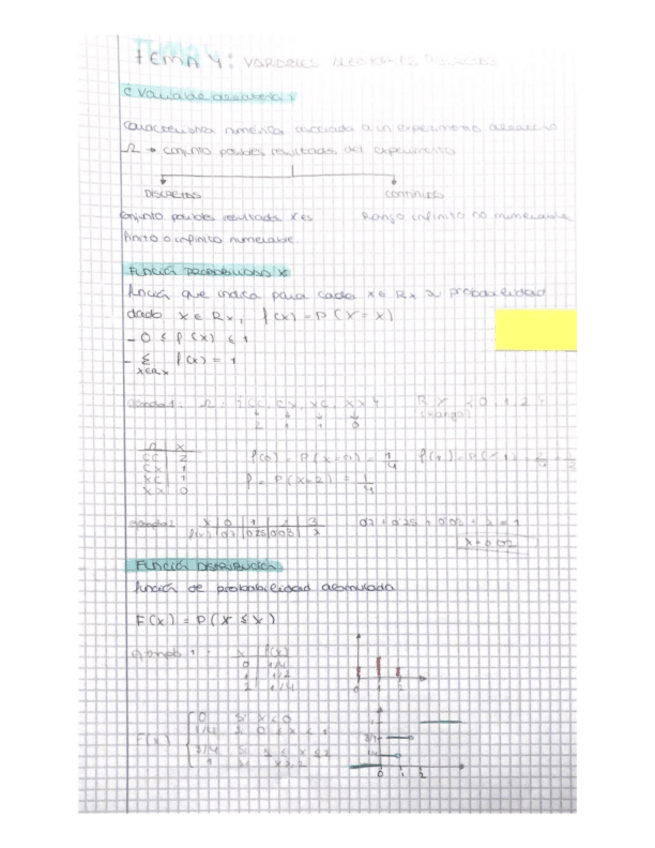 TEMA 4: VARIABLES ALEATORIAS DISCRETAS
¿ Variable aleatoria ?
Característica numérica asociada a un experimento aleatorio
Ω → conjunto posibles resultados del experimento
DISCRETAS
CONTINUAS
conjunto posibles resultados X es
Rango infinito no numerable
finito o infinito numerable.
FUNCIÓN PROBABILIDAD X
función que indica para cada x ∈ Rx su probabilidad
dado x ∈ Rx, f(x) = P(X = x)
- 0 ≤ f(x) ≤ 1
- Σ f(x) = 1
x∈Rx
ejemplo 1: Ω = {CC, CX, XC, XX}
2 1 1 0
(rango)
Ω | X
CC | 2
CX | 1
XC | 1
XX | 0
f(0) = P(X=0) = 1/4
P(X=2) = 1/4
ejemplo 2
x | 0 | 1 | 2 | 3
0'7 | 0'25 | 0'03 | λ
0'7 + 0'25 + 0'03 + λ = 1
λ = 0'02
FUNCIÓN DISTRIBUCIÓN
función de probabilidad acumulada
F(x) = P(X ≤ x)
ejemplo 1:
x | f(x)
0 | 1/4
1 | 1/2
2 | 1/4
0 1 2
F(x)
0 si x < 0
1/4 si 0 ≤ x < 1
3/4 si 1 ≤ x ≤ 2
1 si
0 1 2